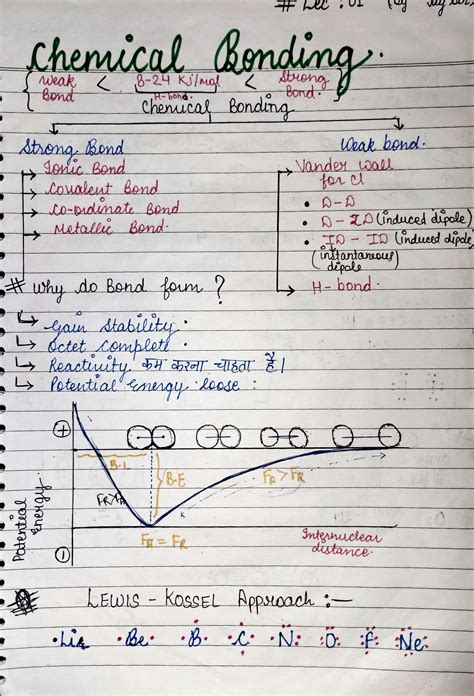 # Lec : 01
Chemical Bonding.
Weak Bond < 8-24 KJ/mol H-bond < Strong Bond.
Chemical Bonding
Strong Bond
Weak bond.
→ Ionic Bond
→ Covalent Bond
→ Co-ordinate Bond
→ Metallic Bond.
→ Vander Wall
for cl
• D-D
• D-ID (induced dipole)
• ID-ID (induced dipole
(instantaneous)
dipole
→ H-bond.
# Why do Bond form ?
↳ Gain Stability.
↳ Octet Complete.
↳ Reactivity कम करना चाहता है।
↳ Potential Energy loose :
+
B.L
B.E
FR>FA
FA>FR
FA = FR
Potential Energy.
Internuclear
distance.
-
LEWIS - KOSSEL Approach :-
Li Be B C N O F Ne